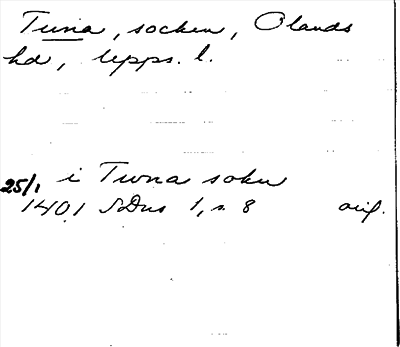 Tuna, socken, Olands
hd, Upps. l.
25/1 i Twna sokn
1401 SDns 1, s. 8 orig.